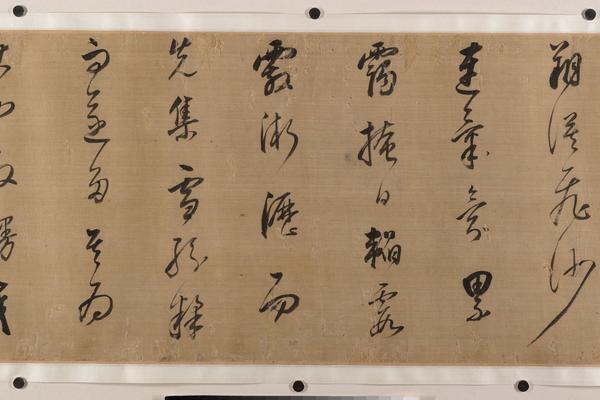 朔漠飛沙
連氣氛累
靄掩日韜霞
霰淅瀝而
先集雪紛糅
而遂多其為